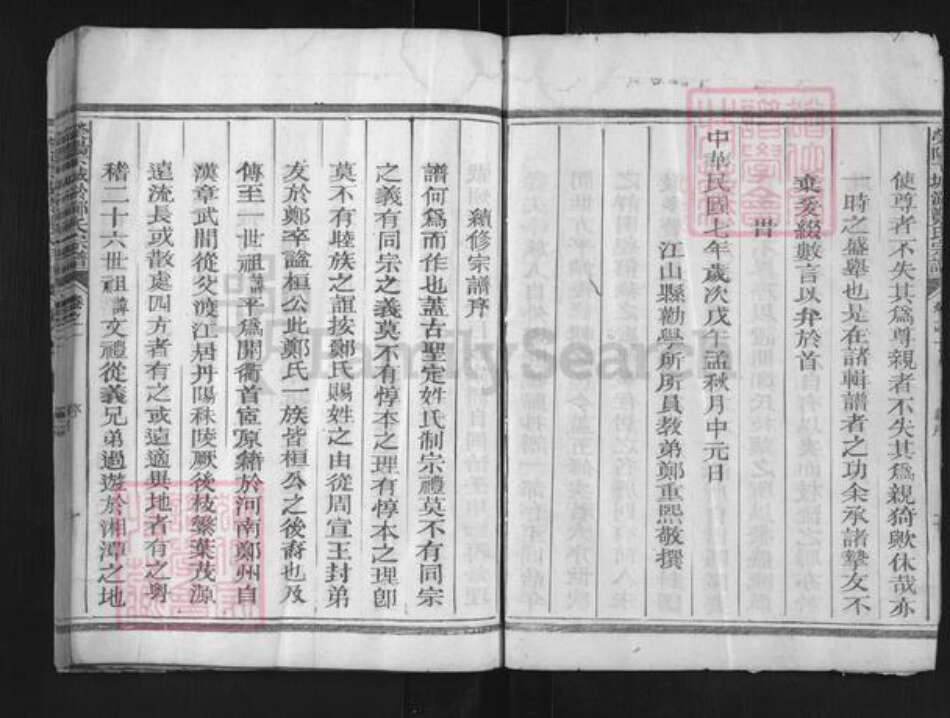 使尊者不失其爲尊親者不失其爲親猗歟休哉亦
一時之盛舉也是在諸輯譜者之功余承諸摯友不
棄爰綴數言以弁於首
旹
中華民國七年歲次戊午孟秋月中元日
江山縣勸學所所員教弟鄭重熙敬撰
續修宗譜序
譜何爲而作也蓋古聖定姓氏制宗禮莫不有同宗
之義有同宗之義莫不有惇本之理有惇本之理卽
莫不有睦族之誼按鄭氏賜姓之由從周宣王封弟
友於鄭卒謚桓公此鄭氏一族皆桓公之後裔也及
傳至一世祖諱平爲開衢首宦原籍於河南鄭州自
漢章武間從父渡江居丹陽秣陵厥後枝繁葉茂源
遠流長或散處四方者有之或遠適異地者有之粵
稽二十六世祖諱文禮從義兄弟過遊於湘潭之地
FamilySearch